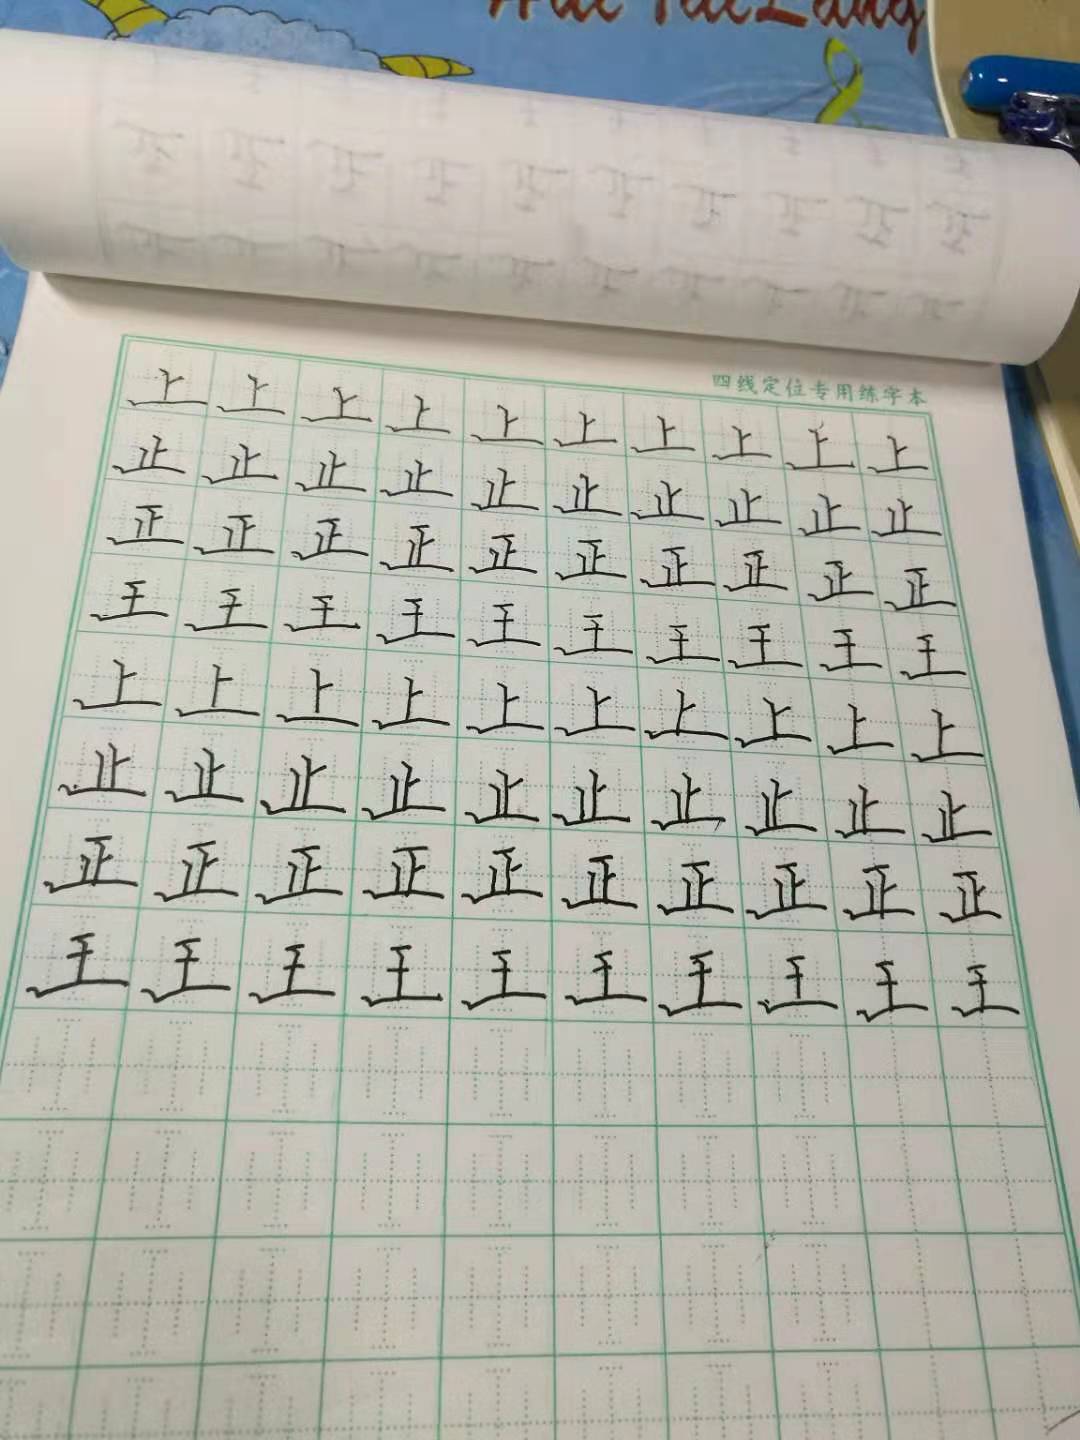 四线定位专用练字本
上上上上上上上上上上
止止止止止止止止止止
正正正正正正正正正正
王王王王王王王王王王
上上上上上上上上上上
止止止止止止止止止止
正正正正正正正正正正
王王王王王王王王王王